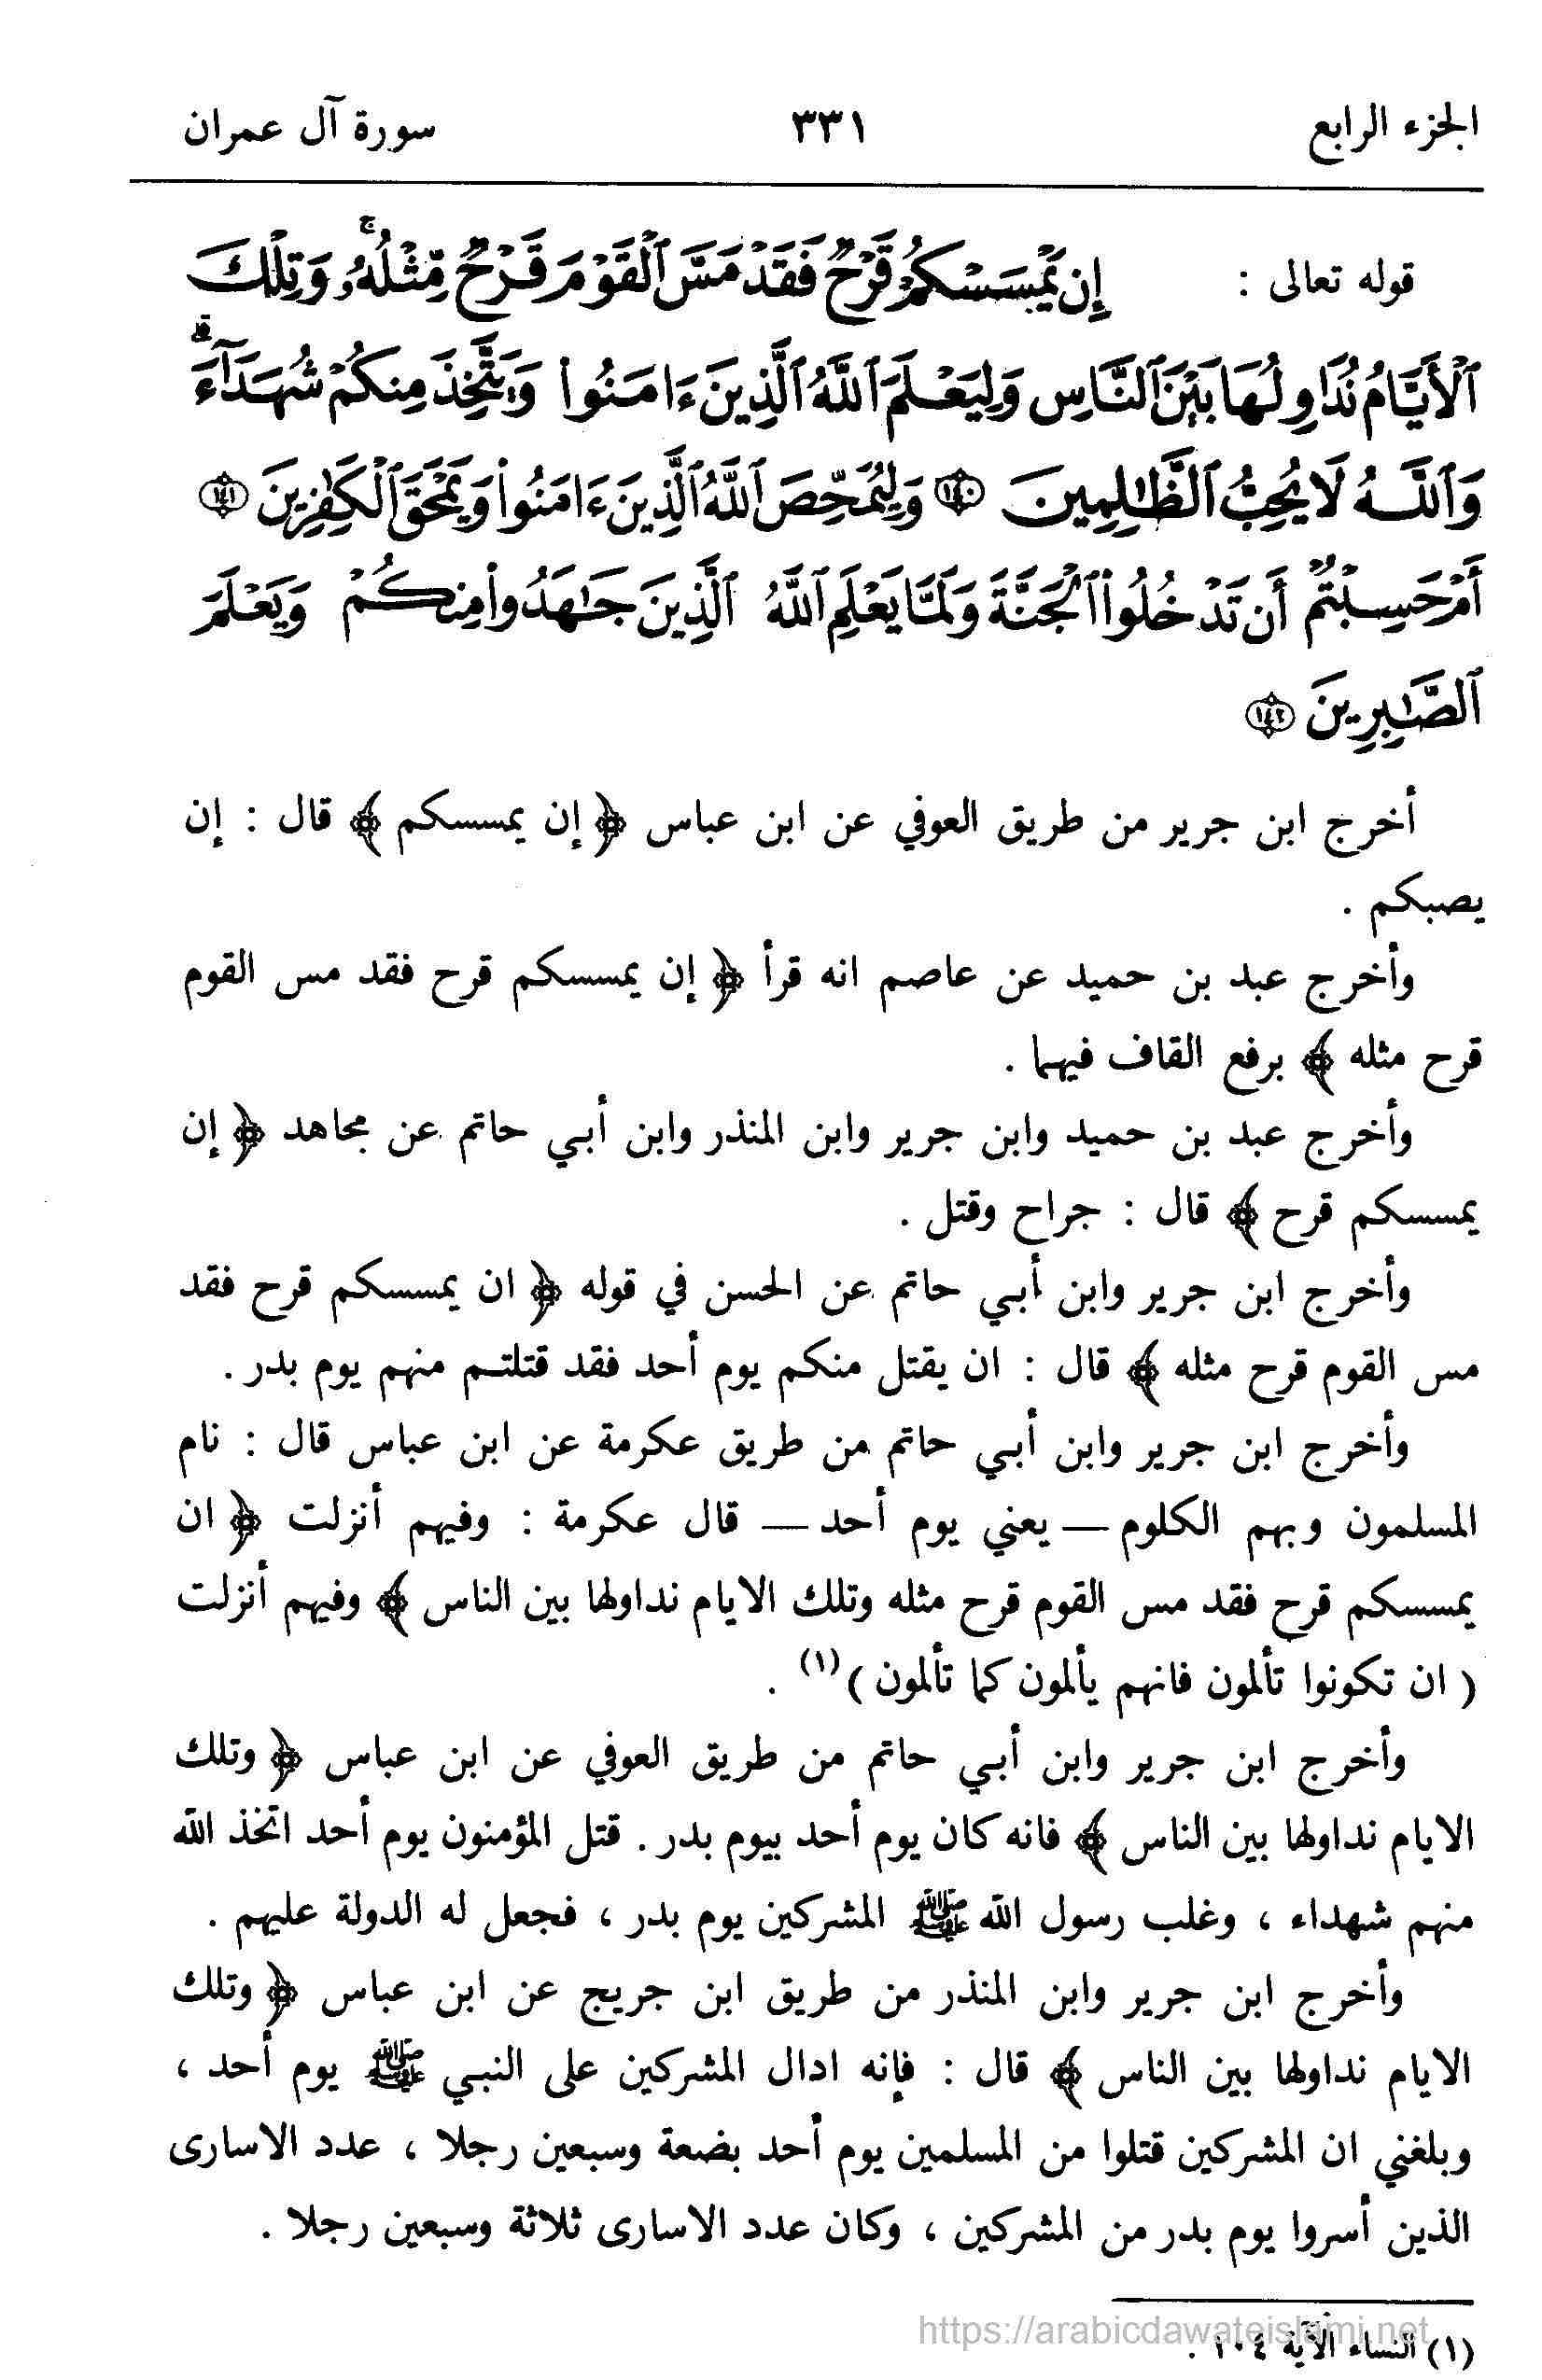 الجزء الرابع ٣٣١ سورة آل عمران
قوله تعالى : إِن يَمْسَسْكُمْ قَرْحٌ فَقَدْ مَسَّ ٱلْقَوْمَ قَرْحٌ مِّثْلُهُۥ ۚ وَتِلْكَ
ٱلْأَيَّامُ نُدَاوِلُهَا بَيْنَ ٱلنَّاسِ وَلِيَعْلَمَ ٱللَّهُ ٱلَّذِينَ ءَامَنُوا۟ وَيَتَّخِذَ مِنكُمْ شُهَدَآءَ ۗ
وَٱللَّهُ لَا يُحِبُّ ٱلظَّٰلِمِينَ ١٤٠ وَلِيُمَحِّصَ ٱللَّهُ ٱلَّذِينَ ءَامَنُوا۟ وَيَمْحَقَ ٱلْكَٰفِرِينَ ١٤١
أَمْ حَسِبْتُمْ أَن تَدْخُلُوا۟ ٱلْجَنَّةَ وَلَمَّا يَعْلَمِ ٱللَّهُ ٱلَّذِينَ جَٰهَدُوا۟ مِنكُمْ وَيَعْلَمَ
ٱلصَّٰبِرِينَ ١٤٢
أخرج ابن جرير من طريق العوفي عن ابن عباس ﴿ إن يمسسكم ﴾ قال : إن
يصبكم .
وأخرج عبد بن حميد عن عاصم انه قرأ ﴿ إن يمسسكم قرح فقد مس القوم
قرح مثله ﴾ برفع القاف فيهما .
وأخرج عبد بن حميد وابن جرير وابن المنذر وابن أبي حاتم عن مجاهد ﴿ إن
يمسسكم قرح ﴾ قال : جراح وقتل .
وأخرج ابن جرير وابن أبي حاتم عن الحسن في قوله ﴿ ان يمسسكم قرح فقد
مس القوم قرح مثله ﴾ قال : ان يقتل منكم يوم أحد فقد قتلتم منهم يوم بدر .
وأخرج ابن جرير وابن أبي حاتم من طريق عكرمة عن ابن عباس قال : نام
المسلمون وبهم الكلوم — يعني يوم أحد — قال عكرمة : وفيهم أنزلت ﴿ ان
يمسسكم قرح فقد مس القوم قرح مثله وتلك الايام نداولها بين الناس ﴾ وفيهم أنزلت
( ان تكونوا تألمون فانهم يألمون كما تألمون )(١) .
وأخرج ابن جرير وابن أبي حاتم من طريق العوفي عن ابن عباس ﴿ وتلك
الايام نداولها بين الناس ﴾ فانه كان يوم أحد بيوم بدر . قتل المؤمنون يوم أحد اتخذ الله
منهم شهداء ، وغلب رسول الله ﷺ المشركين يوم بدر ، فجعل له الدولة عليهم .
وأخرج ابن جرير وابن المنذر من طريق ابن جريج عن ابن عباس ﴿ وتلك
الايام نداولها بين الناس ﴾ قال : فإنه ادال المشركين على النبي ﷺ يوم أحد ،
وبلغني ان المشركين قتلوا من المسلمين يوم أحد بضعة وسبعين رجلا ، عدد الاسارى
الذين أسروا يوم بدر من المشركين ، وكان عدد الاسارى ثلاثة وسبعين رجلا .
(١) النساء الآية ١٠٤ .
https://arabicdawateislami.net